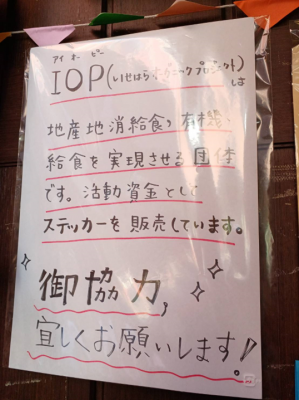 アイ オー ピー
IOP(いせはらオーガニックプロジェクト)
は
地産地消給食、有機
給食を実現させる団体
です。活動資金として
ステッカーを販売しています。
御協力,
宜しくお願いします!